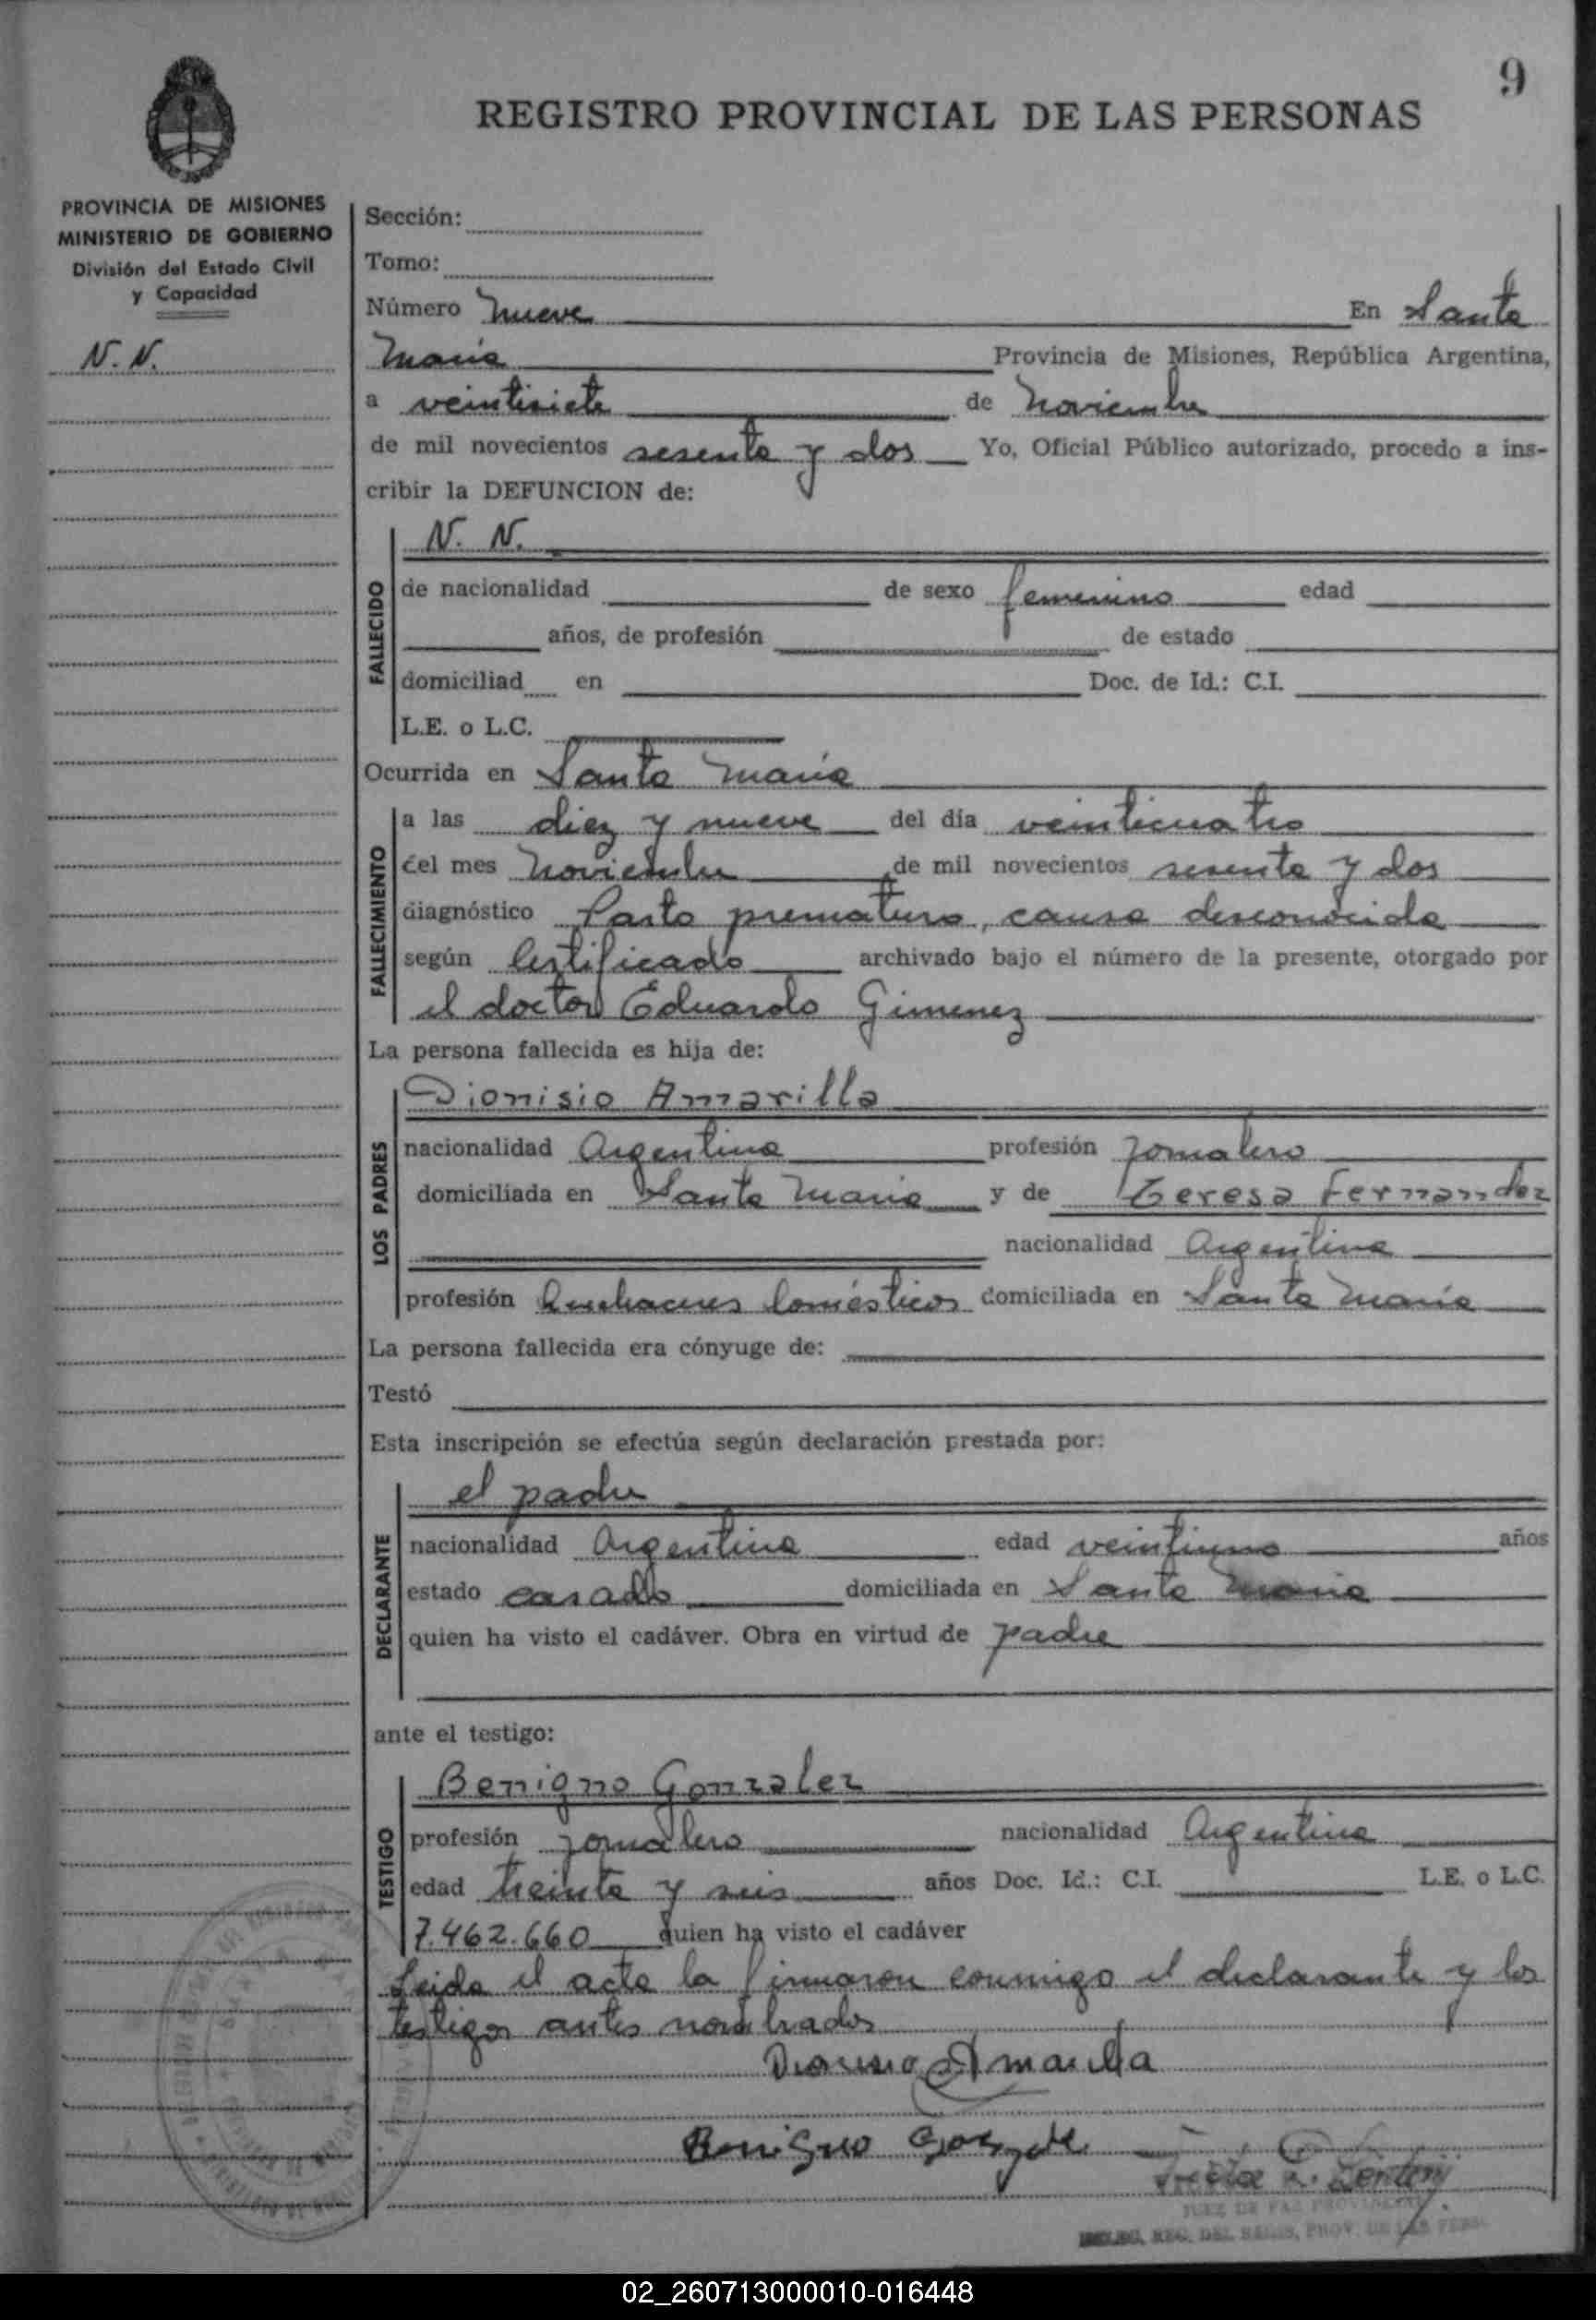 9
REGISTRO PROVINCIAL DE LAS PERSONAS
PROVINCIA DE MISIONES
MINISTERIO DE GOBIERNO
División del Estado Civil
y Capacidad
N. N.
Sección:
Tomo:
Número nueve En Santa
María Provincia de Misiones, República Argentina,
a veintisiete de Noviembre
de mil novecientos sesenta y dos Yo, Oficial Público autorizado, procedo a ins-
cribir la DEFUNCION de:
FALLECIDO
N. N.
de nacionalidad de sexo femenino edad
años, de profesión de estado
domiciliad en Doc. de Id.: C.I.
L.E. o L.C.
Ocurrida en Santa María
FALLECIMIENTO
a las diez y nueve del día veinticuatro
del mes Noviembre de mil novecientos sesenta y dos
diagnóstico Parto prematuro, causa desconocida
según Certificado archivado bajo el número de la presente, otorgado por
el doctor Eduardo Gimenez
La persona fallecida es hija de:
LOS PADRES
Dionisio Amarilla
nacionalidad Argentina profesión Jornalero
domiciliada en Santa María y de Teresa Fernandez
nacionalidad Argentina
profesión Quehaceres Domésticos domiciliada en Santa María
La persona fallecida era cónyuge de:
Testó
Esta inscripción se efectúa según declaración prestada por:
DECLARANTE
el padre
nacionalidad Argentina edad veintiuno años
estado casado domiciliada en Santa María
quien ha visto el cadáver. Obra en virtud de padre
ante el testigo:
TESTIGO
Benigno Gonzalez
profesión Jornalero nacionalidad Argentina
edad treinta y seis años Doc. Id.: C.I. L.E. o L.C.
7.462.660 quien ha visto el cadáver
Leida el acta la firmaron conmigo el declarante y los
testigos antes nombrados
Dionisio Amarilla
Benigno Gonzalez
JUEZ DE PAZ PROVINCIAL
02_260713000010-016448